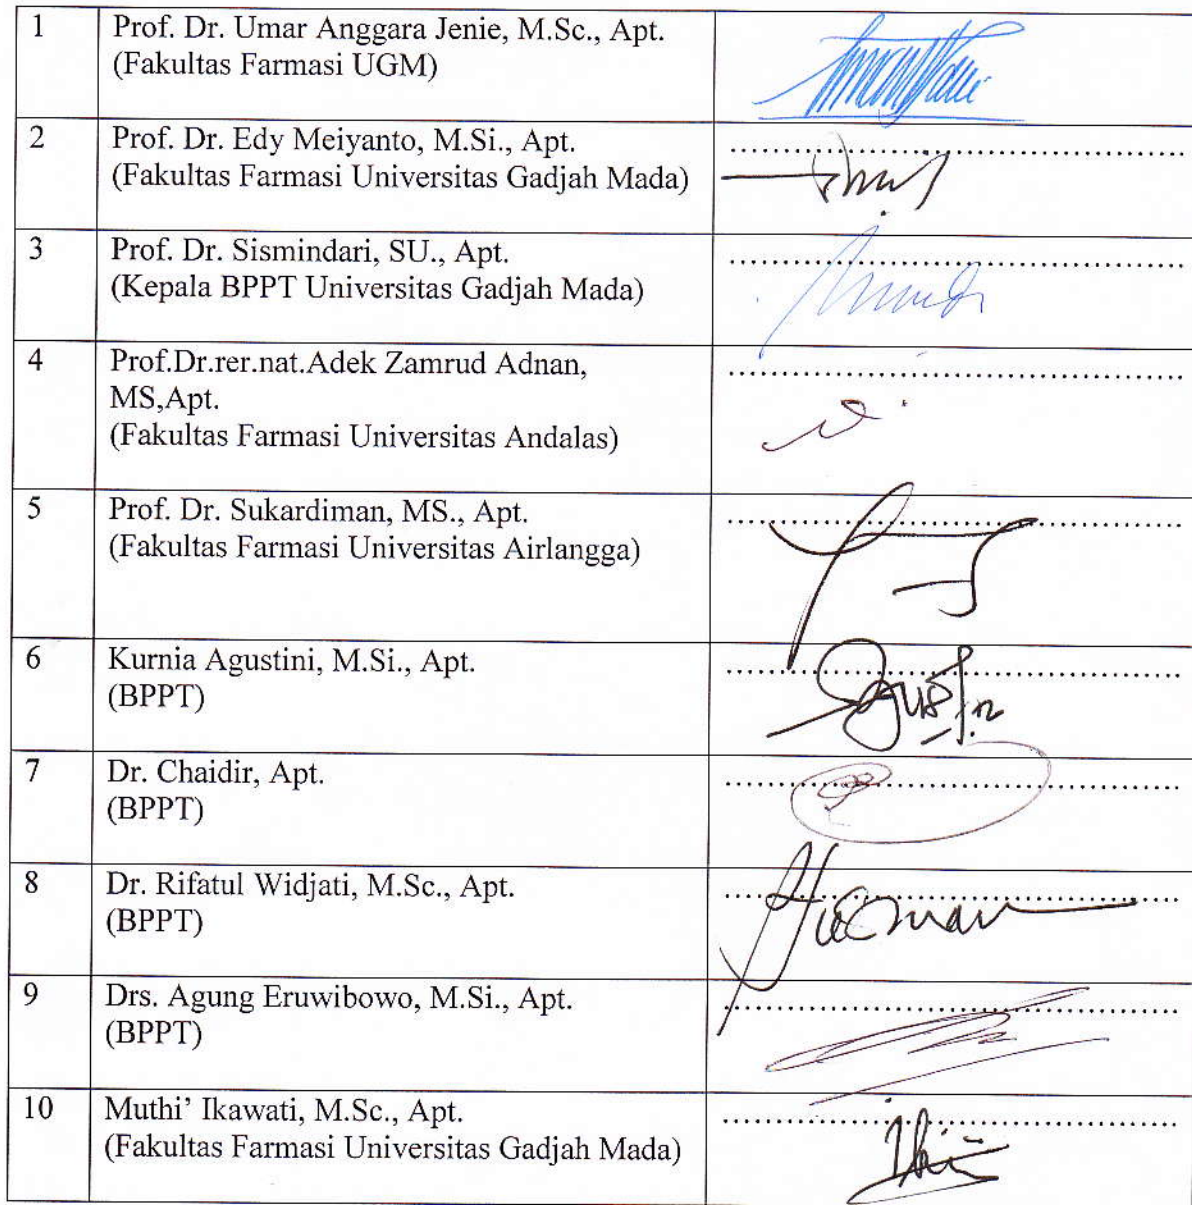 1 Prof. Dr. Umar Anggara Jenie, M.Sc., Apt.
(Fakultas Farmasi UGM)
2 Prof. Dr. Edy Meiyanto, M.Si., Apt.
(Fakultas Farmasi Universitas Gadjah Mada)
3 Prof. Dr. Sismindari, SU., Apt.
(Kepala BPPT Universitas Gadjah Mada)
4 Prof.Dr.rer.nat.Adek Zamrud Adnan,
MS,Apt.
(Fakultas Farmasi Universitas Andalas)
5 Prof. Dr. Sukardiman, MS., Apt.
(Fakultas Farmasi Universitas Airlangga)
6 Kurnia Agustini, M.Si., Apt.
(BPPT)
7 Dr. Chaidir, Apt.
(BPPT)
8 Dr. Rifatul Widjati, M.Sc., Apt.
(BPPT)
9 Drs. Agung Eruwibowo, M.Si., Apt.
(BPPT)
10 Muthi’ Ikawati, M.Sc., Apt.
(Fakultas Farmasi Universitas Gadjah Mada)